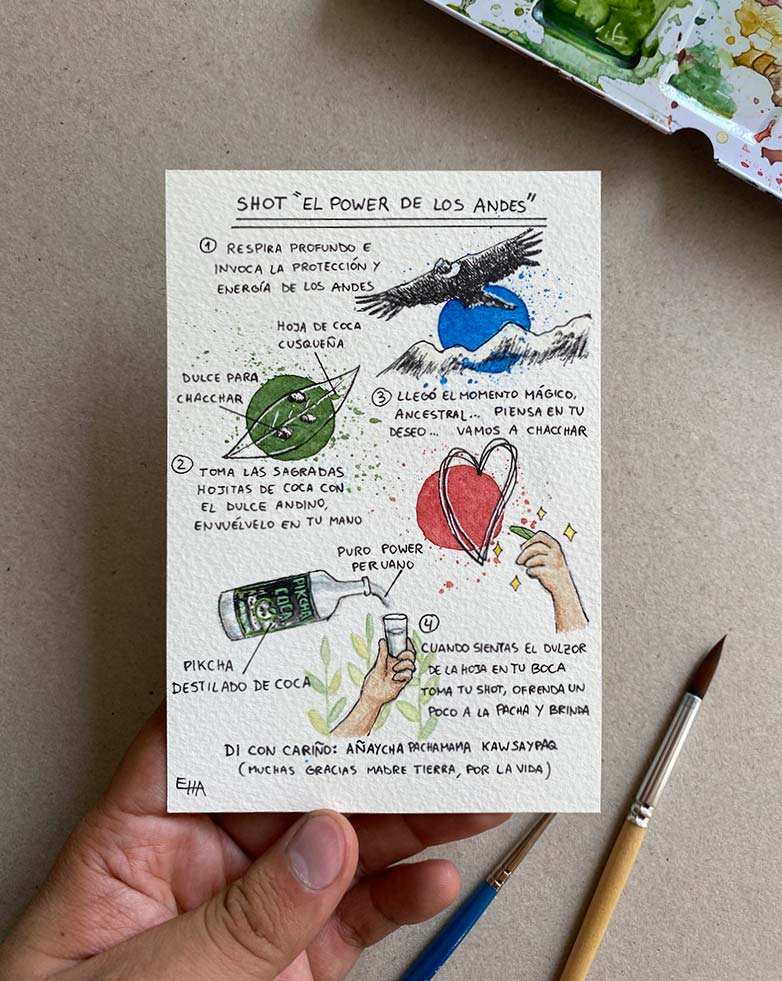 SHOT "EL POWER DE LOS ANDES"
① RESPIRA PROFUNDO E
INVOCA LA PROTECCIÓN Y
ENERGÍA DE LOS ANDES
HOJA DE COCA
CUSQUEÑA
DULCE PARA
CHACCHAR
② TOMA LAS SAGRADAS
HOJITAS DE COCA CON
EL DULCE ANDINO,
ENVUÉLVELO EN TU MANO
③ LLEGÓ EL MOMENTO MÁGICO,
ANCESTRAL... PIENSA EN TU
DESEO... VAMOS A CHACCHAR
PURO POWER
PERUANO
PIKCHA
COCA
PIKCHA
DESTILADO DE COCA
④
CUANDO SIENTAS EL DULZOR
DE LA HOJA EN TU BOCA
TOMA TU SHOT, OFRENDA UN
POCO A LA PACHA Y BRINDA
DI CON CARIÑO: AÑAYCHA PACHAMAMA KAWSAYPAQ
(MUCHAS GRACIAS MADRE TIERRA, POR LA VIDA)
EHA